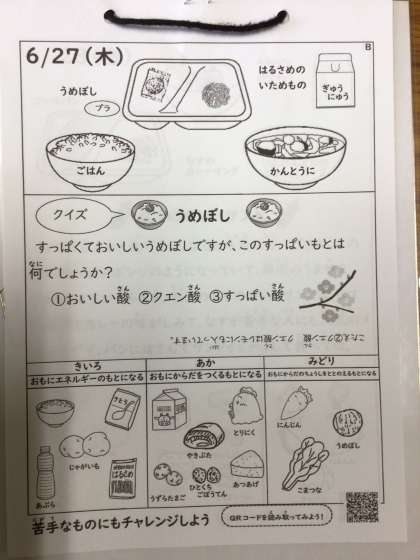 6/27(木)
B
うめぼし
プラ
はるさめの
いためもの
ぎゅう
にゅう
ごはん
かんとうに
クイズ
うめぼし
すっぱくておいしいうめぼしですが、このすっぱいもとは
なに
何でしょうか?
さん さん さん
①おいしい酸 ②クエン酸 ③すっぱい酸
こたえ②クエン酸 クエン酸はレモンにも入っています。
きいろ
あか
みどり
おもにエネルギーのもとになる
おもにからだをつくるもとになる
おもにからだのちょうしをととのえるもとになる
さとう
とりにく
にんじん
やきぶた
うめぼし
じゃがいも
はるさめ
あぶら
うずらたまご
ひとくち
ごぼうてん
あつあげ
こまつな
にがて
苦手なものにもチャレンジしよう
QRコードを読み取ってみよう!